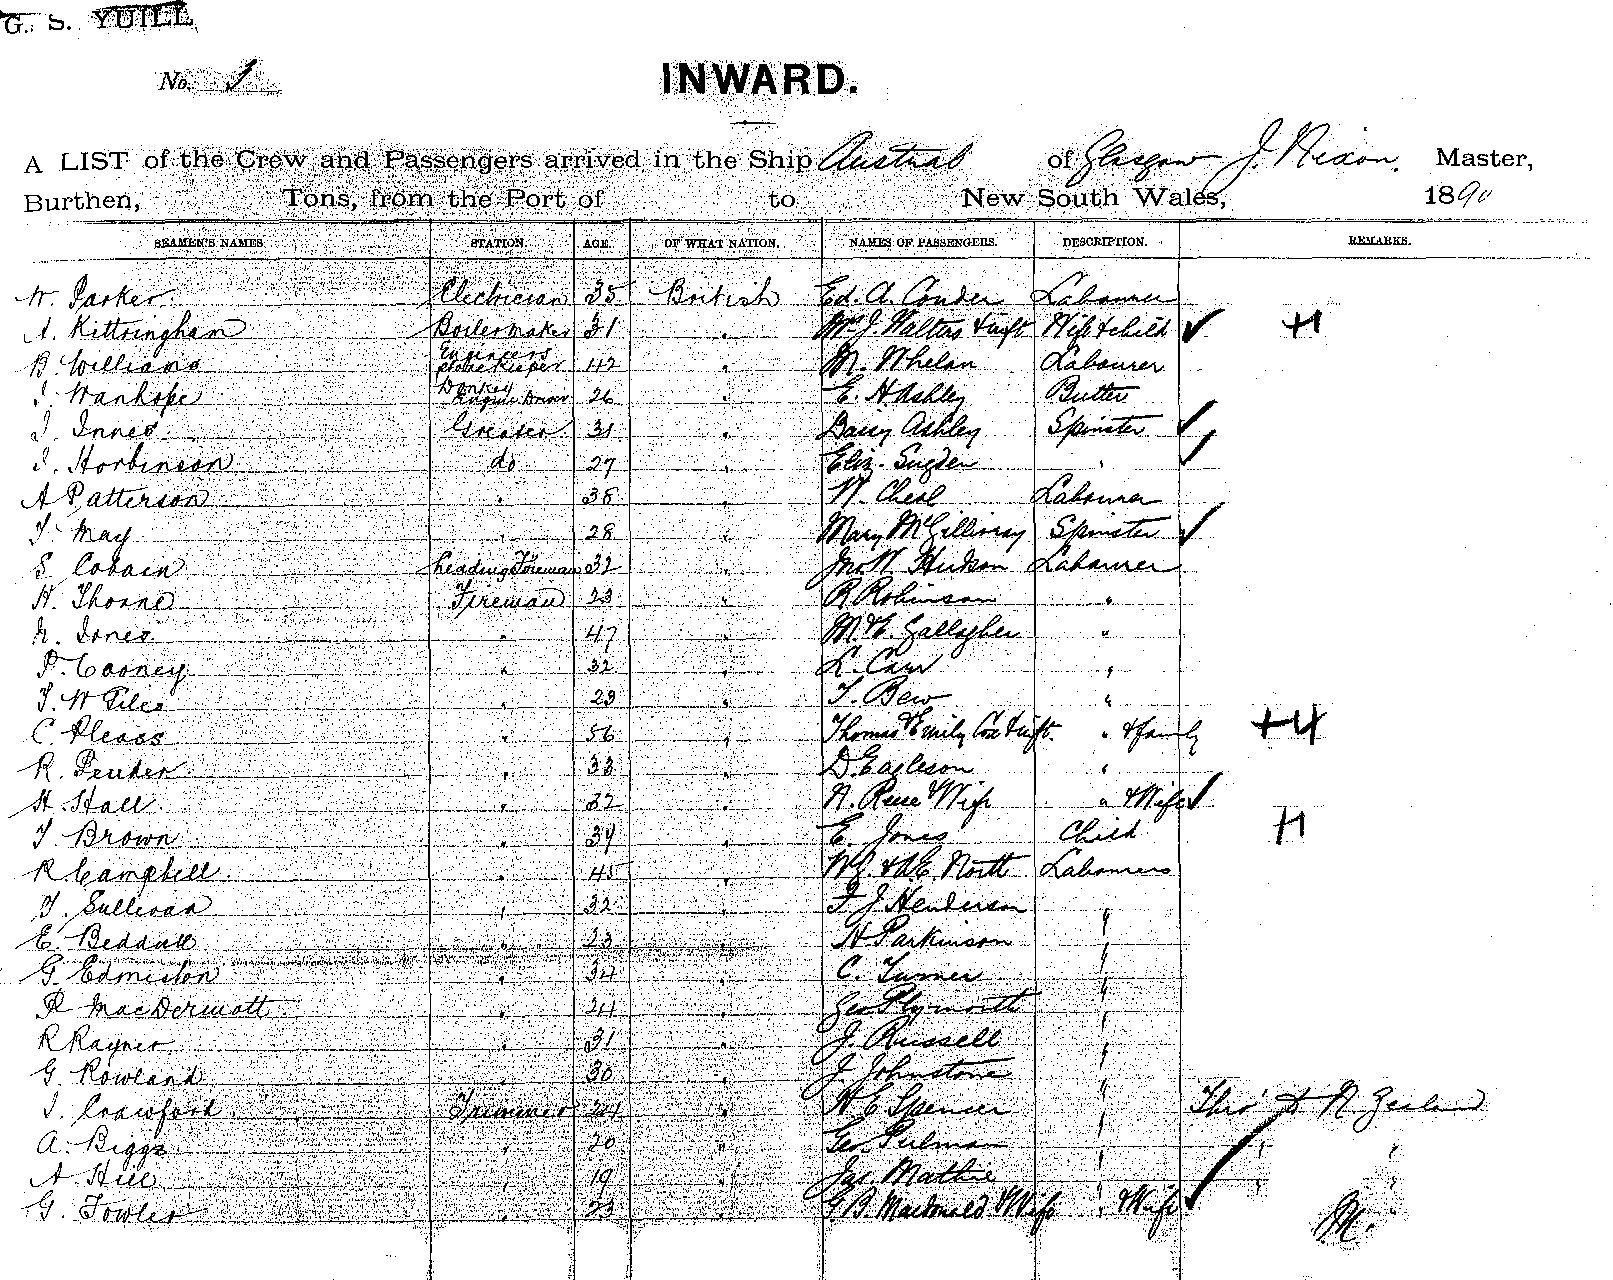 G. S. YUILL
No. 1
INWARD.
A LIST of the Crew and Passengers arrived in the Ship Austral of Glasgow J. Nixon. Master,
Burthen, Tons, from the Port of to New South Wales, 1890
SEAMEN'S NAMES STATION. AGE. OF WHAT NATION. NAMES OF PASSENGERS. DESCRIPTION. REMARKS.
W. Parker Electrician 35 British Ed. A. Conder Labourer
A. Kittringham Boilermaker 31 " Mr J. Walters & wife Wife & child
B. Williams Engineers Storekeeper 42 " M. Whelan Labourer
J. Wanhope Donkey Engine Driver 26 " E. H Ashley Butler
J. Innes Greaser 31 " Daisy Ashley Spinster
J. Horbinson do 27 " Eliz. Sugden "
A Patterson " 38 " W. Cheal Labourer
T. May " 28 " Mary McGillivray Spinster
S. Cobain Leading Fireman 32 " Jno W. Hudson Labourer
H. Thorne Fireman 23 " R Robinson "
Jones " 47 " Gallagher "
P. Cooney " 32 " L. Carr "
T. W Piles " 23 " T. Bew "
C. Pleass " 56 " Thomas & Emily Cox & inft. " & family
R. Pender " 33 " D. Eagleson "
H. Hall " 32 " & Wife " & Wife
T Brown " 39 " E. Jones Child
R Campbell " 45 " North Labourers
T. Sullivan " 32 " F J Henderson "
E. Beddall " 23 " H Parkinson "
G. Edmiston " 34 " C. Turner "
P MacDermott " 24 " Geo Plymouth "
R Rayner " 31 " J. Russell "
G. Rowland " 30 " J Johnstone "
J. Crawford Trimmer 24 " H E Spencer " Thro' to N. Zealand
A. Biggs " 20 " Geo. Pulman " " "
A. Hill " 19 " Jas. Mathie " " "
G. Fowler " 23 " G. B. Macdonald & Wife " & Wife
M.